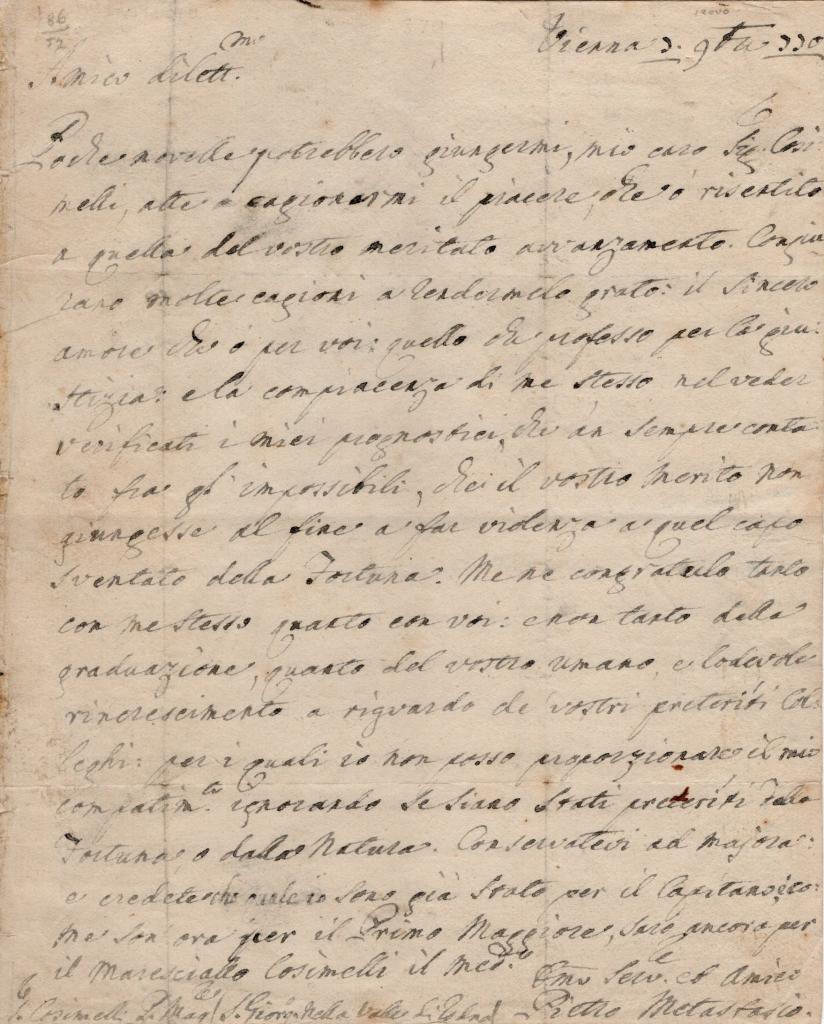 86
52
Vienna 3. 9bre 330
Amico dilett.mo
Poche novelle potrebbero giungermi, mio caro Sig.e Cosi-
melli, atte a cagionarmi il piacere, che ò risentito
a quella del vostro meritato avvanzamento. Congiu-
rano molte cagioni a rendermelo grato: il sincero
amore che ò per voi: quello che professo per la giu-
stizia: e la compiacenza di me stesso nel veder
verificati i miei prognostici, che àn sempre conta
to fra gl' impossibili, che il vostro merito non
giungesse al fine a far violenza a quel capo
sventato della Fortuna. Me ne congratulo tanto
con me stesso quanto con voi: e non tanto della
graduazione, quanto del vostro umano, e lodevole
rincrescimento a riguardo de' vostri preteriti Col-
leghi: per i quali io non posso proporzionare il mio
compatim.to ignorando se siano stati preteriti dalla
Fortuna, o dalla Natura. Conservatevi ad majora:
e credete che quale io sono già stato per il Capitano, co-
me son ora per il Primo Maggiore, sarò ancora per
il Maresciallo Cosimelli il med.mo
Serv.e ed Amico
Pietro Metastasio.
S. Cosimelli P. Mag.e S. Giorg. Nella Valle di